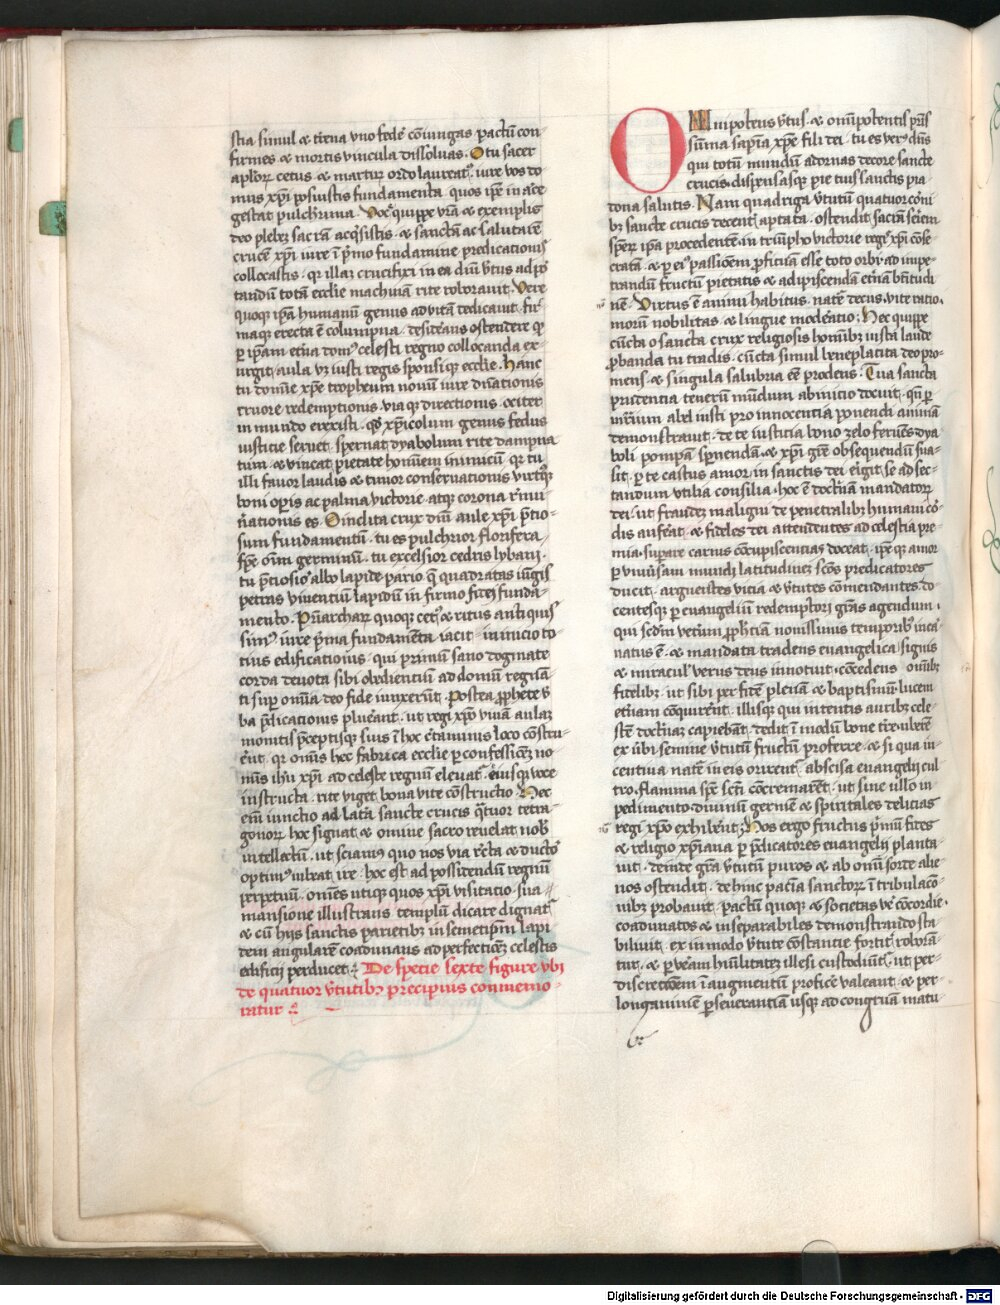 stia simul & tirena vno fedē cōiungas pactū con-
firmes & mortis vincula dissoluas. O tu sacer
aplōꝝ cetus & martirū ordo laureatꝰ. iure vos do-
mus xp̄i posuistis fundamenta quos ip̄e in ae
gestat pulcherrima. Vos quippe v̄ia & exemplis
deo plebeꝫ sacrā acq̄sistis. & sanctā ac salutarē
crucē xp̄i iure ī p̄mo fundamine predicationis
collocastis. qꝛ illaꝫ crucifixi in ea diuī v̄tus ad por-
tandū totā ecclie machinā rite roborauit. Vere
quoqꝫ ip̄a humanū genus ad vitā dedicauit. fir-
maqꝫ erecta ē columpna. desiderans ostendere qꝫ
ꝑ ip̄am et̄na domꝰ celesti regno collocanda ex-
urgit. aula vꝫ iusti regis sponsiqꝫ ecclie. Hanc
tu domīe xp̄e tropheum nouū iure d̄nationis
cruore redemptionis. via qꝫ directionis. arcter
in mundo erexisti. qꝫ xp̄icolum genus fedus
iusticie seruet. spernat dyabolum rite dampna-
tum. & vincat pietate hom̄em inimicū. qꝛ tu
illi fauor laudis & timor conseruationis virtusqꝫ
boni op̄is ac palma victorie. atqꝫ corona r̄mu-
n̄ationis es. O inclita crux diuī aule xp̄i p̄tio-
sum fundamentū. tu es pulchrior florifera
sp̄e om̄i germinū. tu excelsior cedris lybani.
tu p̄tiosior albo lapide pario q̄ quadratas iūgis
petras viuentiū lapidū in firmo fidei funda-
mento. Pr̄iarcharꝫ quoqꝫ cetꝰ & ritus antiquis-
simꝰ iure p̄ma fundamēta iacit. in inicio to-
tius edificationis. qui primum sano dogmate
corda deuota sibi obedientiū ad domū regnā-
ti suꝑ omīa deo fide iunxerūt. Postea ꝓphete v̄-
ba p̄dicationis pluer̄ant. ut regi xp̄o viuā aulaꝫ
monitis p̄ceptisqꝫ suis ī hoc c̄taminis loco cōstru-
er̄ēt. qꝛ om̄is hec fabrica ecclie ꝑ confessionēꝫ no-
mīs ih̄u xp̄i ad celeste regnū eleuat. eiusqꝫ voce
instructa. rite viget bona vite cōstructio. Nec
em̄ iunctio ad latā sancte crucis q̄tuor tetra-
gonorꝫ hoc signat & omīne sacro reuelat nob̄
intellectū. ut sciamꝰ quo nos via recta & ductor
optimꝰ iubeat ire. hoc est ad possidendū regnū
perpetuū. om̄es utiqꝫ quos xp̄i visitatio sua
mansione illustrans templū dicare dignat
& cū hijs sanctis parietibꝫ in semetip̄m lapi-
dem angularē coadunans ad perfectionēꝫ celestis
edificij perducet. De specie sexte figure vbi
de quatuor v̄tutibꝫ precipuis commemo-
ratur
Omnipotens v̄tus. & om̄ipotentis pr̄is
sūma sapīa xp̄e fili dei. tu es verꝰ dn̄s
qui totū mundū adornas decore sancte
crucis. dispensasqꝫ pie tuis sanctis pia
dona salutis. Nam quadriga v̄tutū quatuor corni-
bꝫ sancte crucis decent̄ aptata. ostendit sacrā sc̄iem
semꝑ ip̄a procedentē in triūpho victorie regi xp̄i cōse-
cratā. & ꝑ eiꝰ passionem ꝓficuā esse toto orbi ad impe-
trandū fructū pietatis & adipiscendā et̄nā b̄titudi-
nē. Virtus ē animi habitus. nat̄e decus. vite ratio.
morum nobilitas & lingue modēatio. Hec quippe
cūcta o sancta crux religiosis hom̄ibꝫ iusta laude
ꝓbanda tu tradis. cūcta simul bene placita deo pro-
mens. & singula salubria eē prodens. Tua sancta
prudentia tenerū mūdum ab inicio docuit. qn̄ ꝑ
mr̄irium abel iusti pro innocentia ponendā animā
demonstrauit. de te iusticia bono zelo feruēs dya-
boli pompā sp̄nendā. & xp̄i gr̄ie obsequendū sua-
sit. ꝑ te castus amor in sanctis dei erigit se ad sec-
tandum vtilia consilia. hoc ē doctnā mandatorꝫ
dei. ut fraudeꝫ maligni de penetralibꝫ humani cor-
dis auferat. & fideles dei attendentes ad celestia pre-
mia. suꝑare carnis concupiscentias doceat. ip̄e qꝫ amor
ꝑ vniūsam mundi latitudineꝫ sc̄os predicatores
ducit. arguentes vitia & v̄tutes cōmendantes. do-
centesqꝫ ꝑ euangeliū redemptori gr̄as agendum.
qui sed̄m veterū ꝓph̄tiā nouissimis temporibꝰ incar-
natus ē. & mandata tradens euangelica. signis
& miraculꝭ verus deus innotuit. cōcedens om̄ibꝫ
fidelibꝫ. ut sibi per fidē plenā & baptismū lucem
et̄nam cōquirent. illisqꝫ qui intentis auribꝫ cele-
stē doctnaꝫ capiebāt. dedit ī modū bone t̄re ubere
ex v̄bi semine v̄tutū fructū proferre. & si qua in-
centiua nat̄e in eis orirent̄. abscisa euangelij cul-
tro. flamma sp̄c sc̄ti cōcremaret̄. ut sine ullo im-
pedimento diuinū germē & spiritales delicias
regi xp̄o exhibent̄. Hos ergo fructus p̄mū fides
& religio xp̄iana ꝑ p̄dicatores euangelij planta-
uit. deinde gr̄a v̄tutū puros & ab omī sorde alie-
nos ostendit. dehinc paciā sanctorꝫ ī tribulacō-
nibꝫ probauit. pactū quoqꝫ & societas ve cōcordie.
coadunatos & inseparabiles demonstrando sta-
biliuit. ex in modo v̄tute cōstantie fortit̄ roborā-
tur. & ꝑ verā hūilitateꝫ illesi custodiunt̄. ut per
discretionem ī augmentū proficē valeant. & per
longaminē ꝑseuerantiā usqꝫ ad congruā matu-
Digitalisierung gefördert durch die Deutsche Forschungsgemeinschaft - DFG